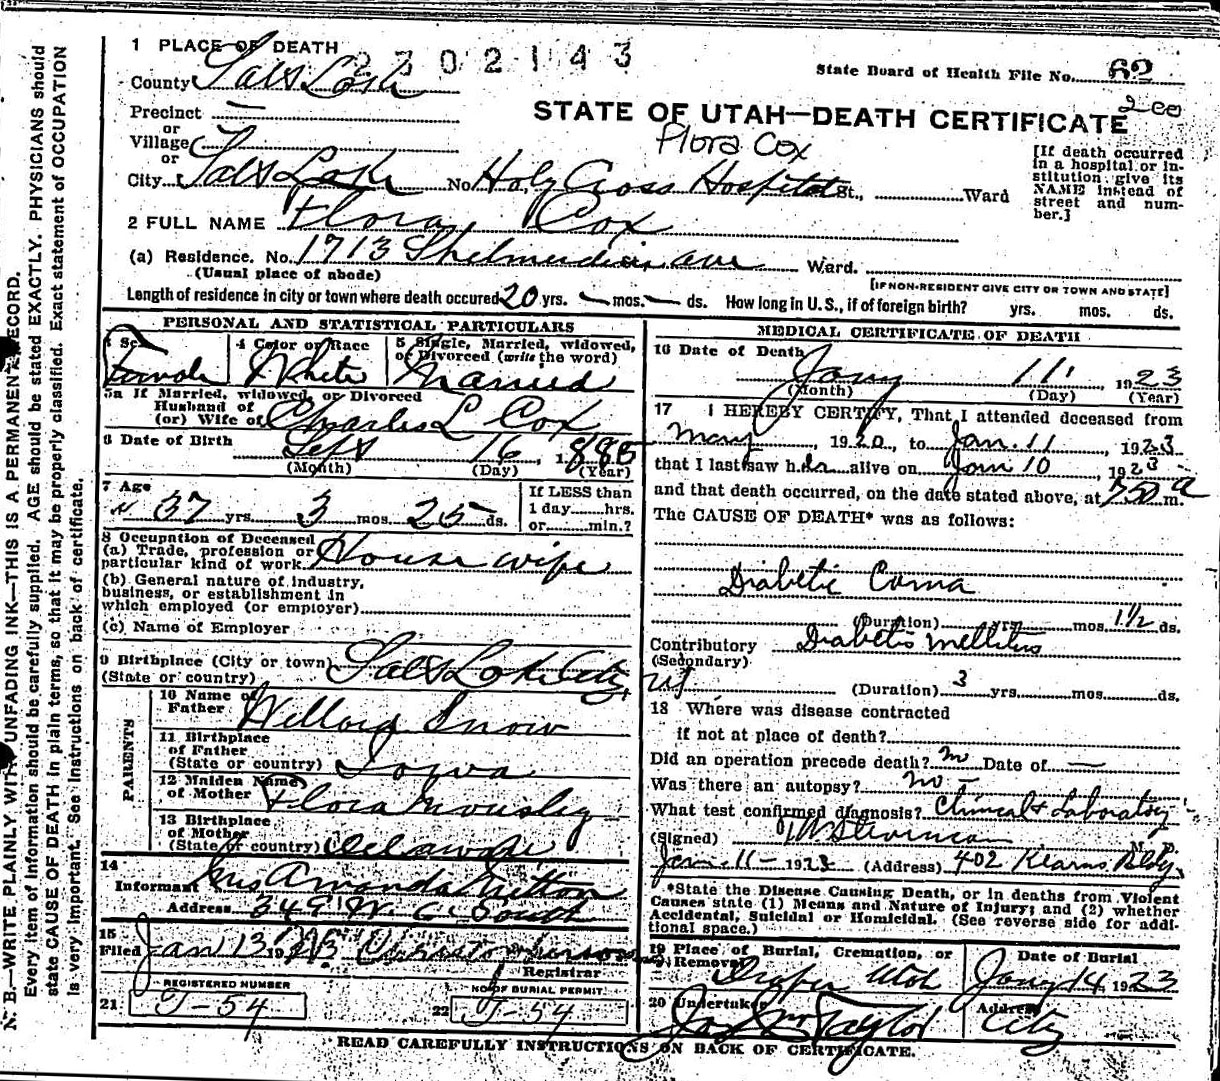 N. B.—WRITE PLAINLY WITH UNFADING INK—THIS IS A PERMANENT RECORD.
Every item of information should be carefully supplied. AGE should be stated EXACTLY. PHYSICIANS should
state CAUSE OF DEATH in plain terms, so that it may be properly classified. Exact statement of OCCUPATION
is very important. See instructions on back of certificate.
1 PLACE OF DEATH
2302143
County Salt Lake
State Board of Health File No. 62
200
Precinct —
or
Village
or
STATE OF UTAH—DEATH CERTIFICATE
Flora Cox
City Salt Lake No. Holy Cross Hospital St., Ward
[If death occurred
in a hospital or in-
stitution give its
NAME instead of
street and num-
ber.]
2 FULL NAME Flora Cox
(a) Residence. No. 1713 ave Ward.
(Usual place of abode)
[IF NON-RESIDENT GIVE CITY OR TOWN AND STATE]
Length of residence in city or town where death occured 20 yrs. — mos. — ds. How long in U. S., if of foreign birth? yrs. mos. ds.
PERSONAL AND STATISTICAL PARTICULARS
3 Sex
Female
4 Color or Race
White
5 Single, Married, widowed,
or Divorced (write the word)
Married
5a If Married, widowed, or Divorced
Husband of
(or) Wife of Charles L Cox
6 Date of Birth Sept 16, 1885
(Month) (Day) (Year)
7 Age
37 yrs. 3 mos. 25 ds.
If LESS than
1 day hrs.
or min.?
8 Occupation of Deceased
(a) Trade, profession or
particular kind of work House wife
(b) General nature of industry,
business, or establishment in
which employed (or employer)
(c) Name of Employer
9 Birthplace (City or town) Salt Lake City
(State or country) Ut
PARENTS
10 Name of
Father Willard Snow
11 Birthplace
of Father
(State or country) Iowa
12 Maiden Name
of Mother Flora Mousley
13 Birthplace
of Mother
(State or country) Delaware
14
Informant Mrs Amanda
Address 349 W. 6. South
15
Filed Jan 13 1923
Registrar
REGISTERED NUMBER
21 J-54
NO. OF BURIAL PERMIT.
22 J-54
MEDICAL CERTIFICATE OF DEATH
16 Date of Death
Jany 11, 1923
(Month) (Day) (Year)
17 I HEREBY CERTIFY, That I attended deceased from
May, 1920, to Jan. 11, 1923
that I last saw her alive on Jan 10, 1923
and that death occurred, on the date stated above, at 7:50 a m.
The CAUSE OF DEATH* was as follows:
Diabetic Coma
(Duration) yrs. mos. 1½ ds.
Contributory Diabetis Mellitus
(Secondary)
(Duration) 3 yrs. mos. ds.
18 Where was disease contracted
if not at place of death?
Did an operation precede death? no Date of —
Was there an autopsy? no —
What test confirmed diagnosis? Clinical & Laboratory
(Signed) M. D.
Jan. 11 - 1923 (Address) 402 Kearns Bldg.
*State the Disease Causing Death, or in deaths from Violent
Causes state (1) Means and Nature of Injury; and (2) whether
Accidental, Suicidal or Homicidal. (See reverse side for addi-
tional space.)
19 Place of Burial, Cremation, or
Removal
Draper Utah
Date of Burial
Jany 14, 1923
20 Undertaker
Jos Wm Taylor
Address
City
READ CAREFULLY INSTRUCTIONS ON BACK OF CERTIFICATE.